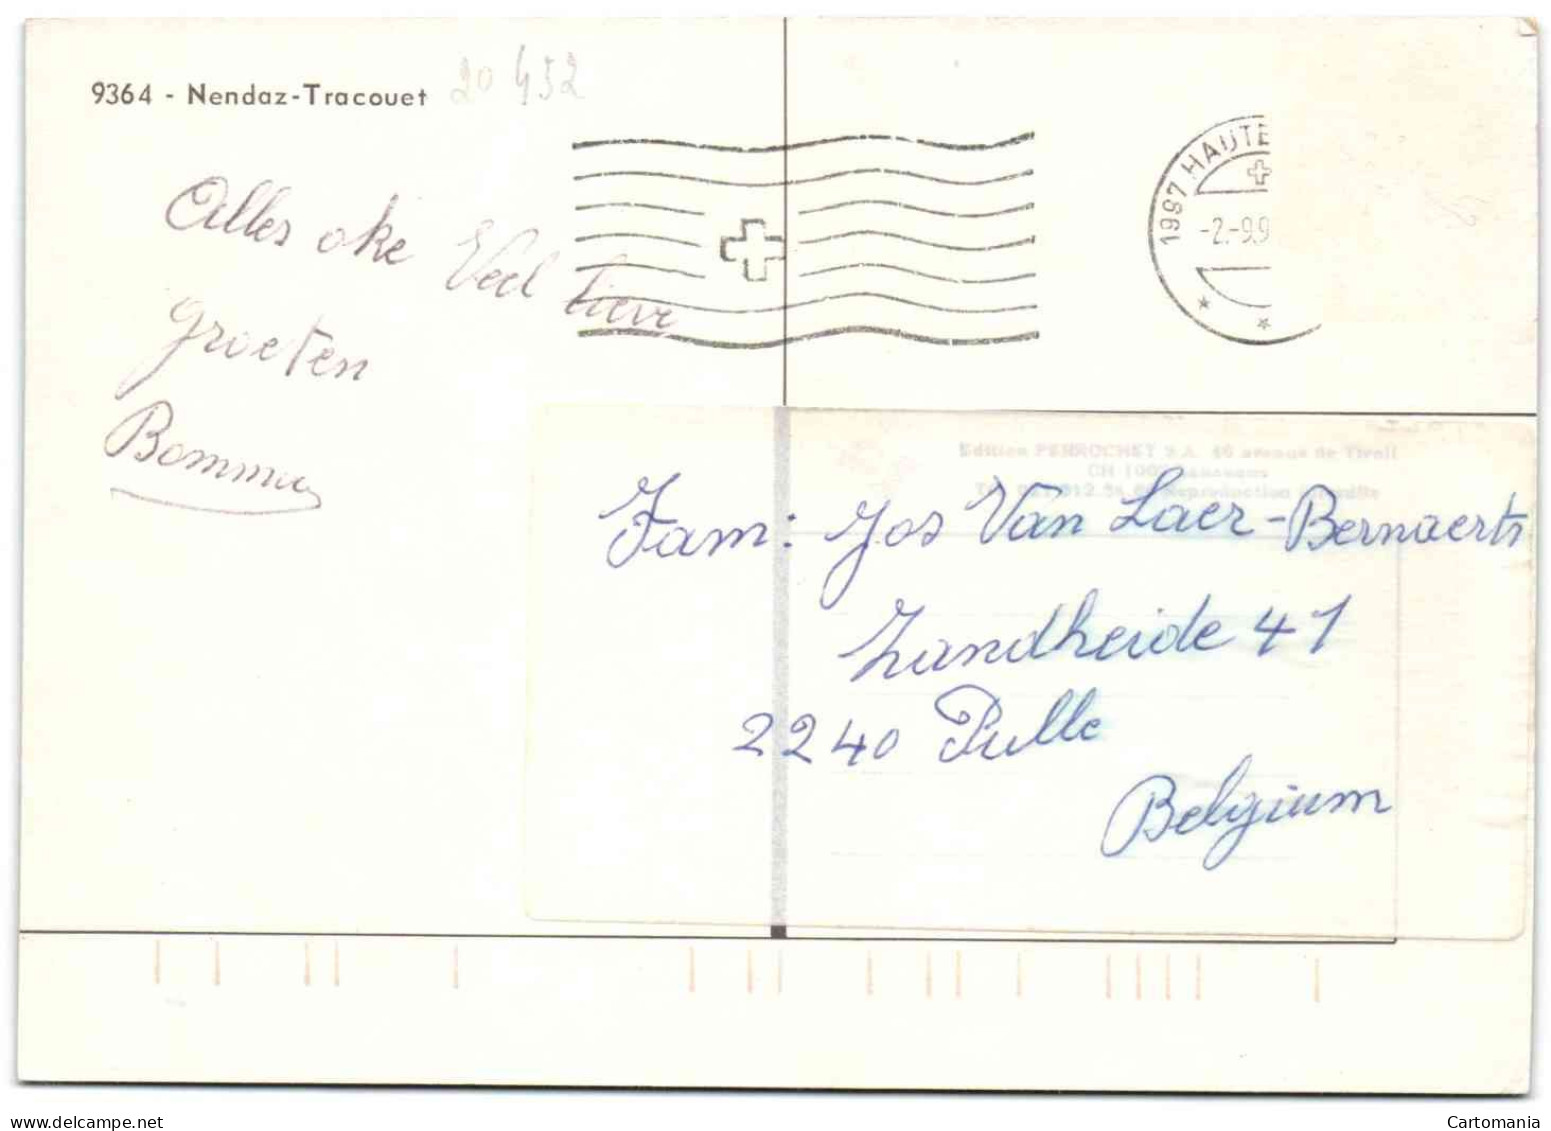 9364 - Nendaz-Tracouet
20 452
Alles oke Veel lieve
groeten
Bomma
1987 HAUTE
-2.-9.9
Edition PERROCHET S.A. avenue de Tivoli
CH
Reproduction interdite
Fam: Jos Van Laer-Bernaerts
Zandheide 41
2240 Pulle
Belgium
Cartomania